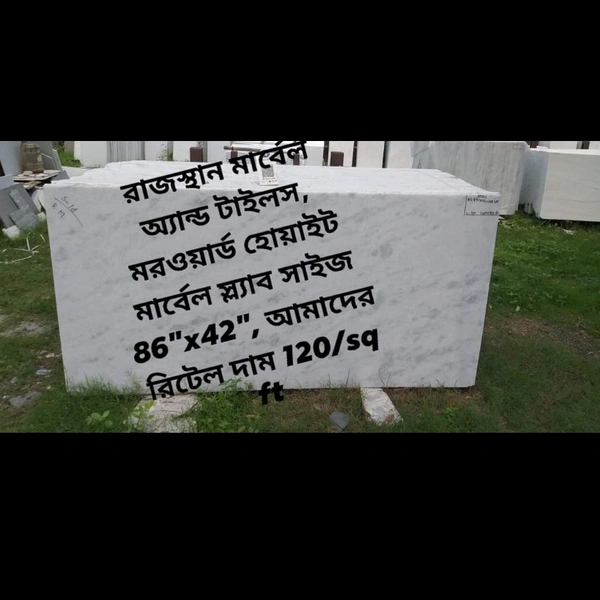 রাজস্থান মার্বেল
অ্যান্ড টাইলস,
মরওয়ার্ড হোয়াইট
মার্বেল স্ল্যাব সাইজ
86"x42", আমাদের
রিটেল দাম 120/sq
ft